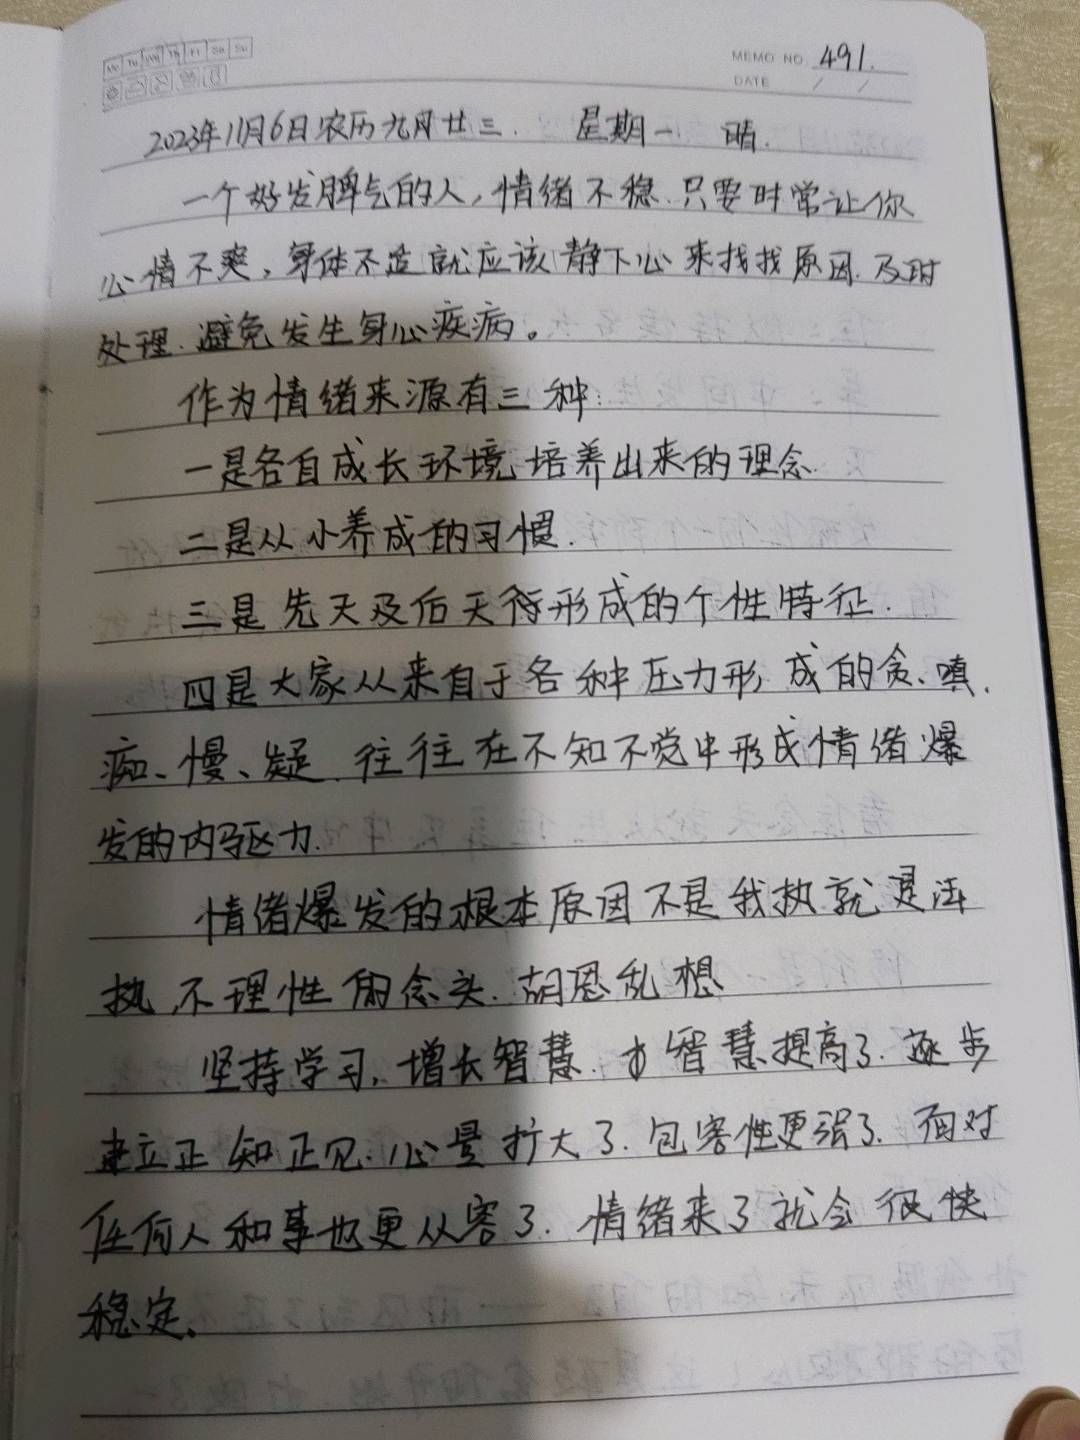 Mo Tu We Th Fr Sa Su
MEMO NO. 491.
DATE / /
2023年11月6日农历九月廿三. 星期一 晴.
一个好发脾气的人,情绪不稳.只要时常让你
心情不爽,身体不适就应该静下心来找找原因.及时
处理.避免发生身心疾病。
作为情绪来源有三种:
一是各自成长环境培养出来的理念.
二是从小养成的习惯.
三是先天及后天待形成的个性特征.
四是大家从来自于各种压力形成的贪、嗔.
痴、慢、疑.往往在不知不觉中形成情绪爆
发的内驱力.
情绪爆发的根本原因不是我执就是法
执,不理性的念头.胡思乱想
坚持学习,增长智慧.智慧提高了.逐步
建立正知正见.心量扩大了.包容性更强了.面对
任何人和事也更从容了.情绪来了就会很快
稳定。